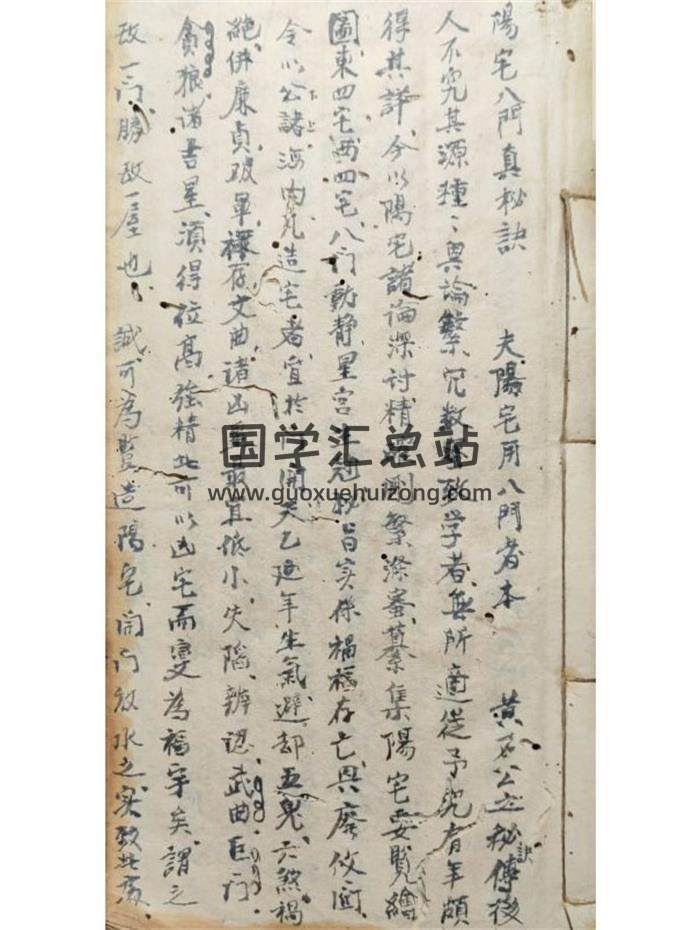 陽宅八門真秘訣 夫陽宅用八門者本 黃石公之秘傳後
訣
人不究其源種〻異論繁冗數 致学者無所適從予究有年頗
得其詳今以陽宅諸論深討精 刪繁滌 纂集陽宅要覧繪
圖東四宅西四宅八门動静星宮 秘旨实係禍福存亡興廢攸関
今以公諸海内凡造宅者宜於 開天乙延年生氣避却五鬼六煞禍
上
下
絶併廉貞破軍祿存文曲諸凶 最宜低小失陷辨認武曲巨门
貪狼諸吉星須得位高強精此可以凶宅而变為福宇矣謂之
故一门勝故一屋也 誠可為 造陽宅開门放水之实致此為
国学汇总站
www.guoxuehuizong.com